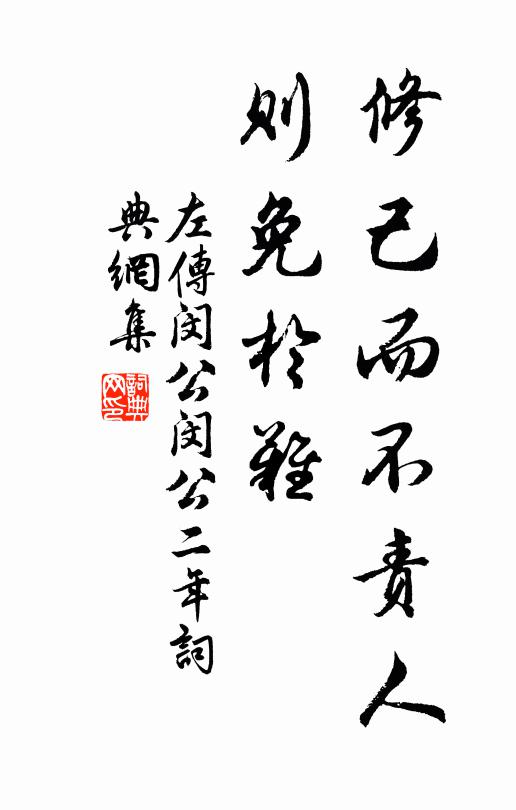 修己而不责人
则免於難
左傳闵公闵公二年詞
典網集
詞典
网印